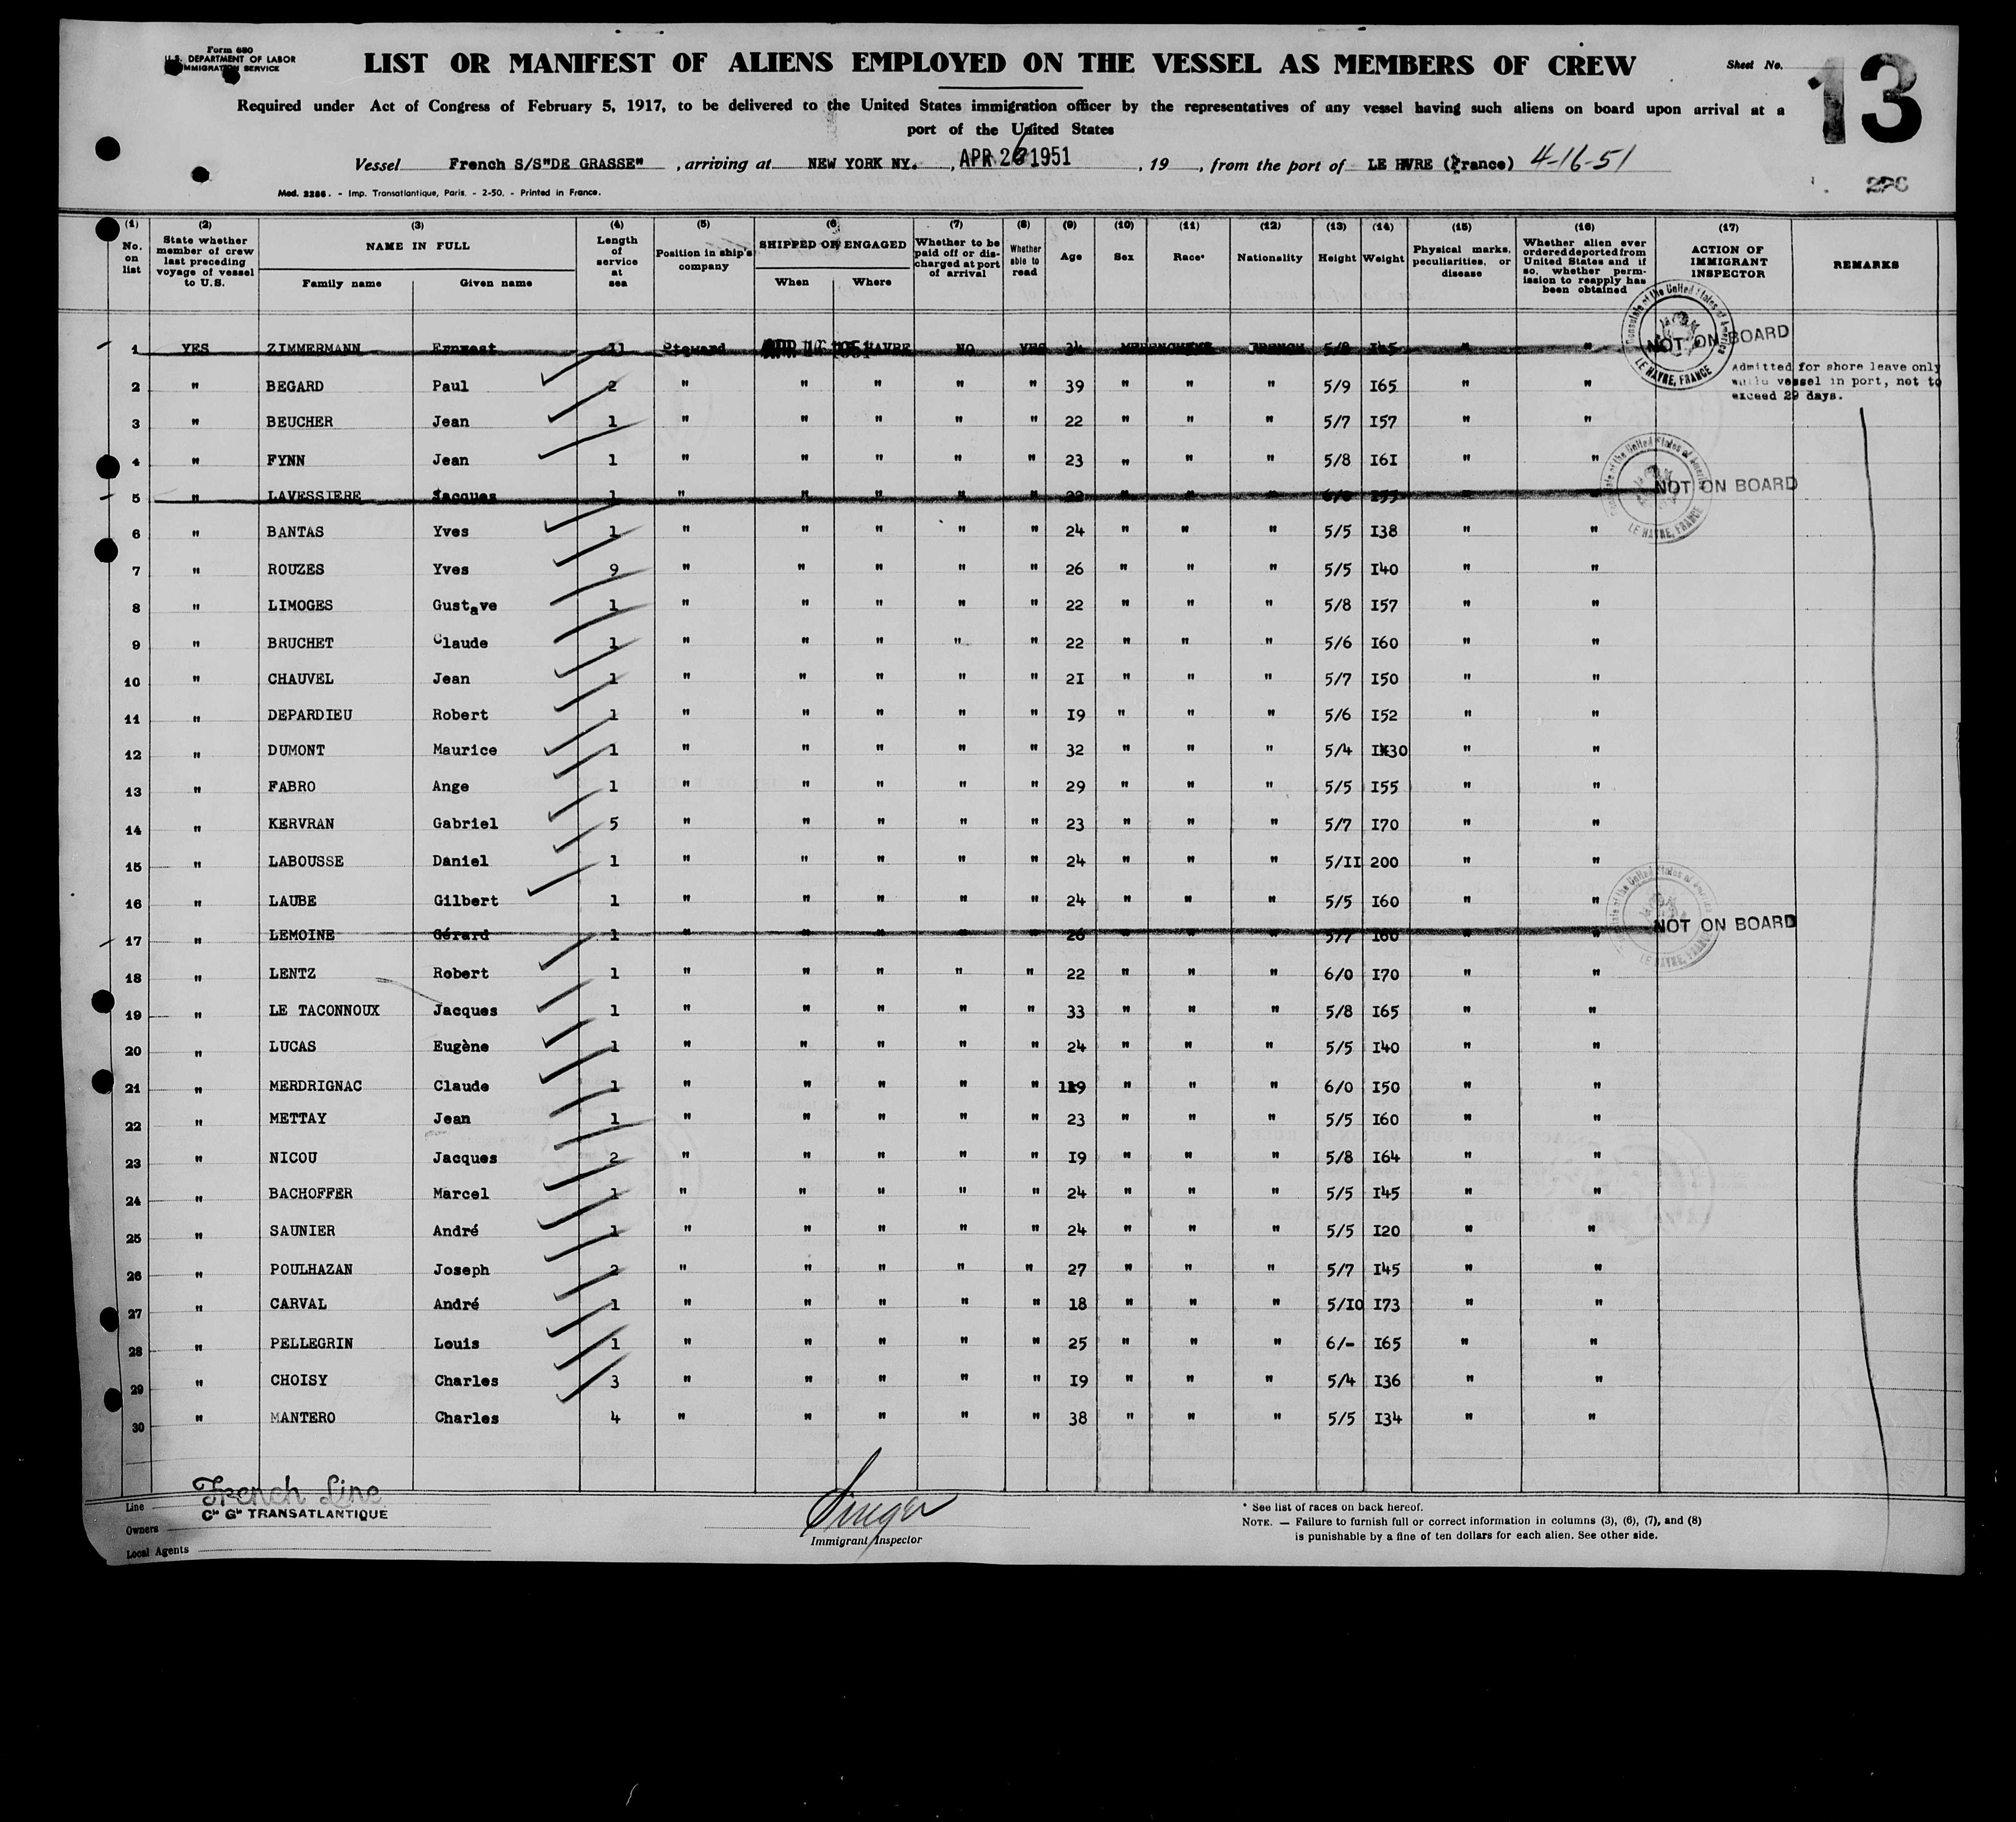 Form 680
U.S. DEPARTMENT OF LABOR
IMMIGRATION SERVICE
LIST OR MANIFEST OF ALIENS EMPLOYED ON THE VESSEL AS MEMBERS OF CREW
Sheet No.
13
Required under Act of Congress of February 5, 1917, to be delivered to the United States immigration officer by the representatives of any vessel having such aliens on board upon arrival at a
port of the United States
Vessel French S/S"DE GRASSE" , arriving at NEW YORK NY. , APR 26 1951 , 19 , from the port of LE HVRE (France) 4-16-51
Med. 2286. - Imp. Transatlantique, Paris. - 2-50. - Printed in France.
(1) (2) (3) (4) (5) (6) (7) (8) (9) (10) (11) (12) (13) (14) (15) (16) (17)
No. on list
State whether member of crew last preceding voyage of vessel to U.S.
NAME IN FULL
Family name Given name
Length of service at sea
Position in ship's company
SHIPPED OR ENGAGED
When Where
Whether to be paid off or discharged at port of arrival
Whether able to read
Age
Sex
Race*
Nationality
Height
Weight
Physical marks, peculiarities, or disease
Whether alien ever ordered deported from United States and if so, whether permission to reapply has been obtained
ACTION OF IMMIGRANT INSPECTOR
REMARKS
1 YES ZIMMERMANN Ernnest 11 Steward HAVRE NO YES 34 FRENCH 5/8 I45 " " NOT ON BOARD
Consulate of the United States of America
LE HAVRE, FRANCE
Admitted for shore leave only
while vessel in port, not to
exceed 29 days.
2 " BEGARD Paul 2 " " " " " 39 " " " 5/9 I65 " "
3 " BEUCHER Jean 1 " " " " " 22 " " " 5/7 I57 " "
4 " FYNN Jean 1 " " " " " 23 " " " 5/8 I6I " "
5 " LAVESSIERE Jacques 1 " " " " " 22 " " " 6/0 I55 " " NOT ON BOARD
Consulate of the United States of America
LE HAVRE, FRANCE
6 " BANTAS Yves 1 " " " " " 24 " " " 5/5 I38 " "
7 " ROUZES Yves 9 " " " " " 26 " " " 5/5 I40 " "
8 " LIMOGES Gustave 1 " " " " " 22 " " " 5/8 I57 " "
9 " BRUCHET Claude 1 " " " " " 22 " " " 5/6 I60 " "
10 " CHAUVEL Jean 1 " " " " " 2I " " " 5/7 I50 " "
11 " DEPARDIEU Robert 1 " " " " " I9 " " " 5/6 I52 " "
12 " DUMONT Maurice 1 " " " " " 32 " " " 5/4 I30 " "
13 " FABRO Ange 1 " " " " " 29 " " " 5/5 I55 " "
14 " KERVRAN Gabriel 5 " " " " " 23 " " " 5/7 I70 " "
15 " LABOUSSE Daniel 1 " " " " " 24 " " " 5/II 200 " "
16 " LAUBE Gilbert 1 " " " " " 24 " " " 5/5 I60 " "
17 " LEMOINE Gérard 1 " " " " " 26 " " " 5/7 I60 " " NOT ON BOARD
LE HAVRE, FRANCE
18 " LENTZ Robert 1 " " " " " 22 " " " 6/0 I70 " "
19 " LE TACONNOUX Jacques 1 " " " " " 33 " " " 5/8 I65 " "
20 " LUCAS Eugène 1 " " " " " 24 " " " 5/5 I40 " "
21 " MERDRIGNAC Claude 1 " " " " " 19 " " " 6/0 I50 " "
22 " METTAY Jean 1 " " " " " 23 " " " 5/5 I60 " "
23 " NICOU Jacques 2 " " " " " I9 " " " 5/8 I64 " "
24 " BACHOFFER Marcel 1 " " " " " 24 " " " 5/5 I45 " "
25 " SAUNIER André 1 " " " " " 24 " " " 5/5 I20 " "
26 " POULHAZAN Joseph 2 " " " " " 27 " " " 5/7 I45 " "
27 " CARVAL André 1 " " " " " 18 " " " 5/IO I73 " "
28 " PELLEGRIN Louis 1 " " " " " 25 " " " 6/- I65 " "
29 " CHOISY Charles 3 " " " " " I9 " " " 5/4 I36 " "
30 " MANTERO Charles 4 " " " " " 38 " " " 5/5 I34 " "
Line French Line
Cie Gle TRANSATLANTIQUE
Owners
Local Agents
Singer
Immigrant Inspector
* See list of races on back hereof.
NOTE. — Failure to furnish full or correct information in columns (3), (6), (7), and (8)
is punishable by a fine of ten dollars for each alien. See other side.